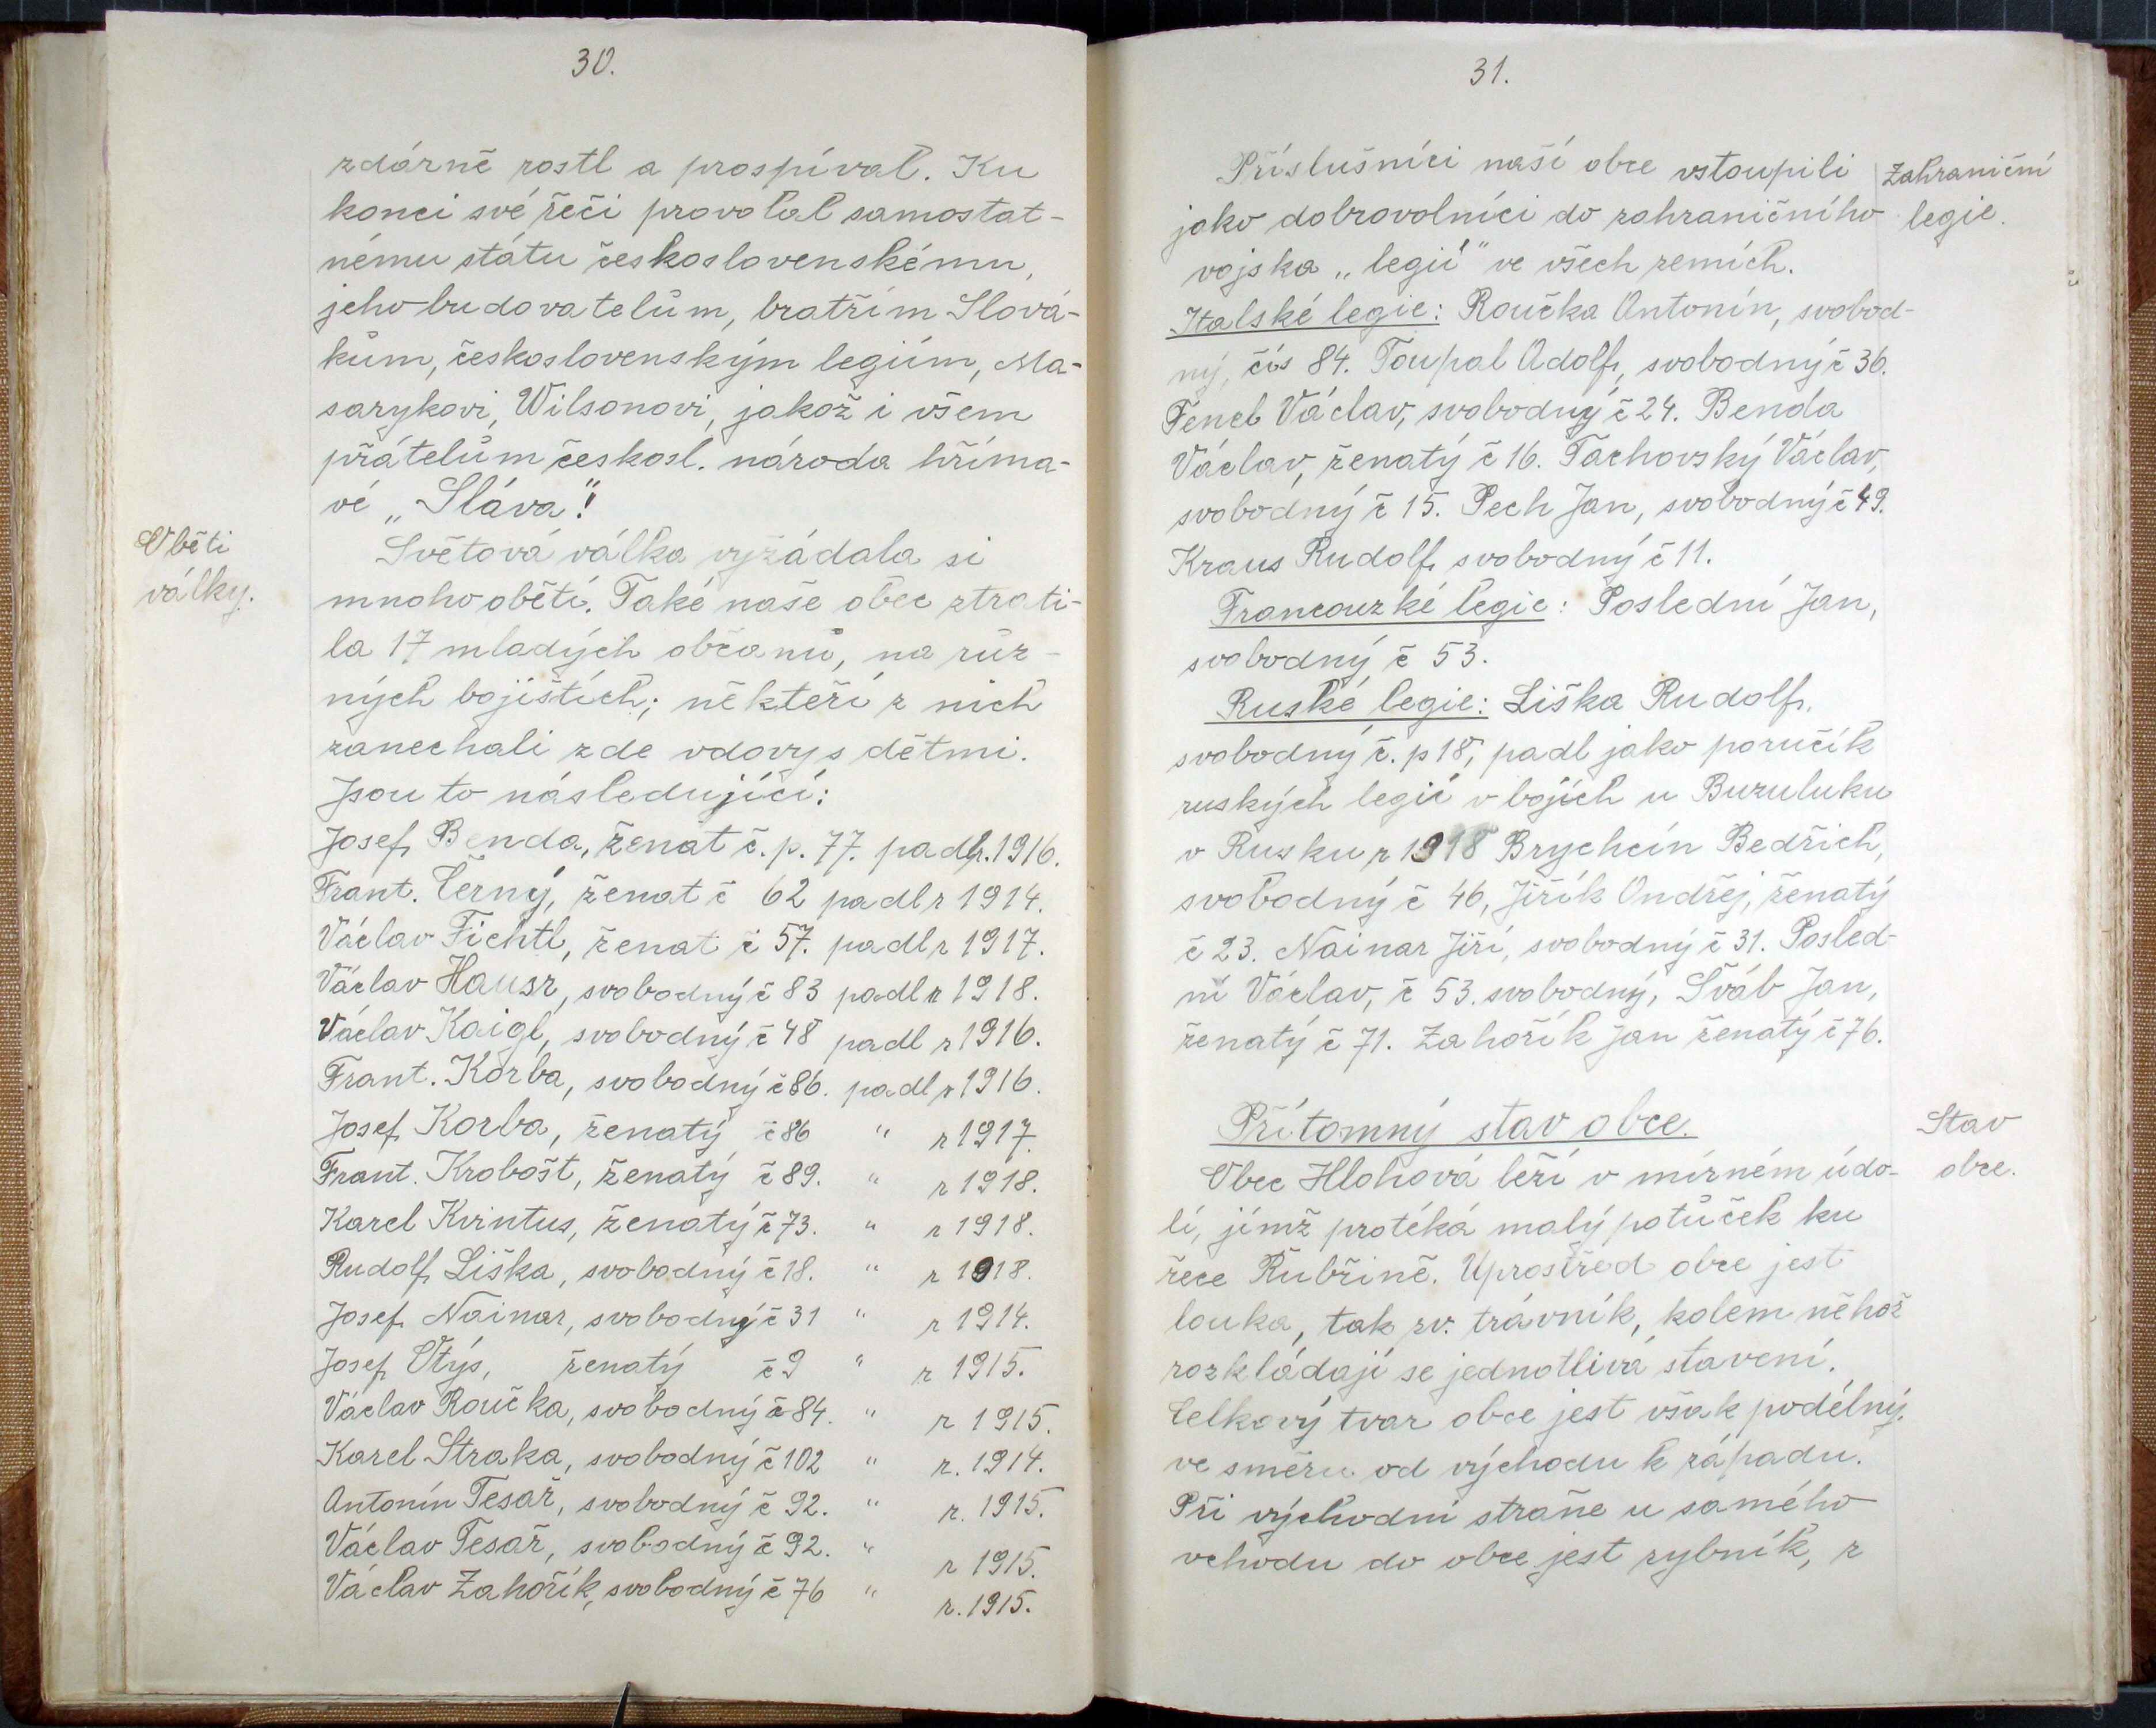 30.
zdárně rostl a prospíval. Ku
konci své řeči provolal samostat-
nému státu československému,
jeho budovatelům, bratřím Slová-
kům, československým legiím, Ma-
sarykovi, Wilsonovi, jakož i všem
přátelům českosl. národa hříma-
vé „Sláva"!
Oběti
války.
Světová válka vyžádala si
mnoho obětí. Také naše obec ztrati-
la 17 mladých občanů, na růz-
ných bojištích; někteří z nich
zanechali zde vdovy s dětmi.
Jsou to následující:
Josef Benda, ženat č. p. 77. padl r. 1916.
Frant. Černý, ženat č 62 padl r 1914.
Václav Fichtl, ženat č 57. padl r 1917.
Václav Hausr, svobodný č 83 padl r 1918.
Václav Kaigl, svobodný č 48 padl r 1916.
Frant. Korba, svobodný č 86. padl r 1916.
Josef Korba, ženatý č 86 " r 1917.
Frant. Krobošt, ženatý č 89. " r 1918.
Karel Kvintus, ženatý č 73. " r 1918.
Rudolf Liška, svobodný č 18. " r 1918.
Josef Nainar, svobodný č 31 " r 1914.
Josef Otýs, ženatý č 9 " r 1915.
Václav Roučka, svobodný č 84. " r 1915.
Karel Straka, svobodný č 102 " r. 1914.
Antonín Tesař, svobodný č 92. " r. 1915.
Václav Tesař, svobodný č 92. " r 1915.
Václav Zahořík, svobodný č 76 " r. 1915.
31.
Příslušníci naší obce vstoupili
jako dobrovolníci do zahraničního
vojska „legií" ve všech zemích.
Zahraniční
legie.
Italské legie: Roučka Antonín, svobod-
ný, čís 84. Toupal Adolf, svobodný č 36.
Fencl Václav, svobodný č 24. Benda
Václav, ženatý č 16. Tachovský Václav,
svobodný č 15. Pech Jan, svobodný č 49.
Kraus Rudolf, svobodný č 11.
Francouzké legie: Poslední Jan,
svobodný č 53.
Ruské legie: Liška Rudolf,
svobodný č. p 18, padl jako poručík
ruských legií v bojích u Buzuluku
v Rusku r 1918 Brychcín Bedřich,
svobodný č 46, Jiřík Ondřej, ženatý
č 23. Nainar Jiří, svobodný č 31. Posled-
ní Václav, č 53. svobodný, Šváb Jan,
ženatý č 71. Zahořík Jan ženatý č 76.
Přítomný stav obce.
Stav
obce.
Obec Hlohová leží v mírném údo-
lí, jímž protéká malý potůček ku
řece Rubřině. Uprostřed obce jest
louka, tak zv. trávník, kolem něhož
rozkládají se jednotlivá stavení.
Celkový tvar obce jest však podélný,
ve směru od východu k západu.
Při východní straně u samého
vchodu do obce jest rybník, z